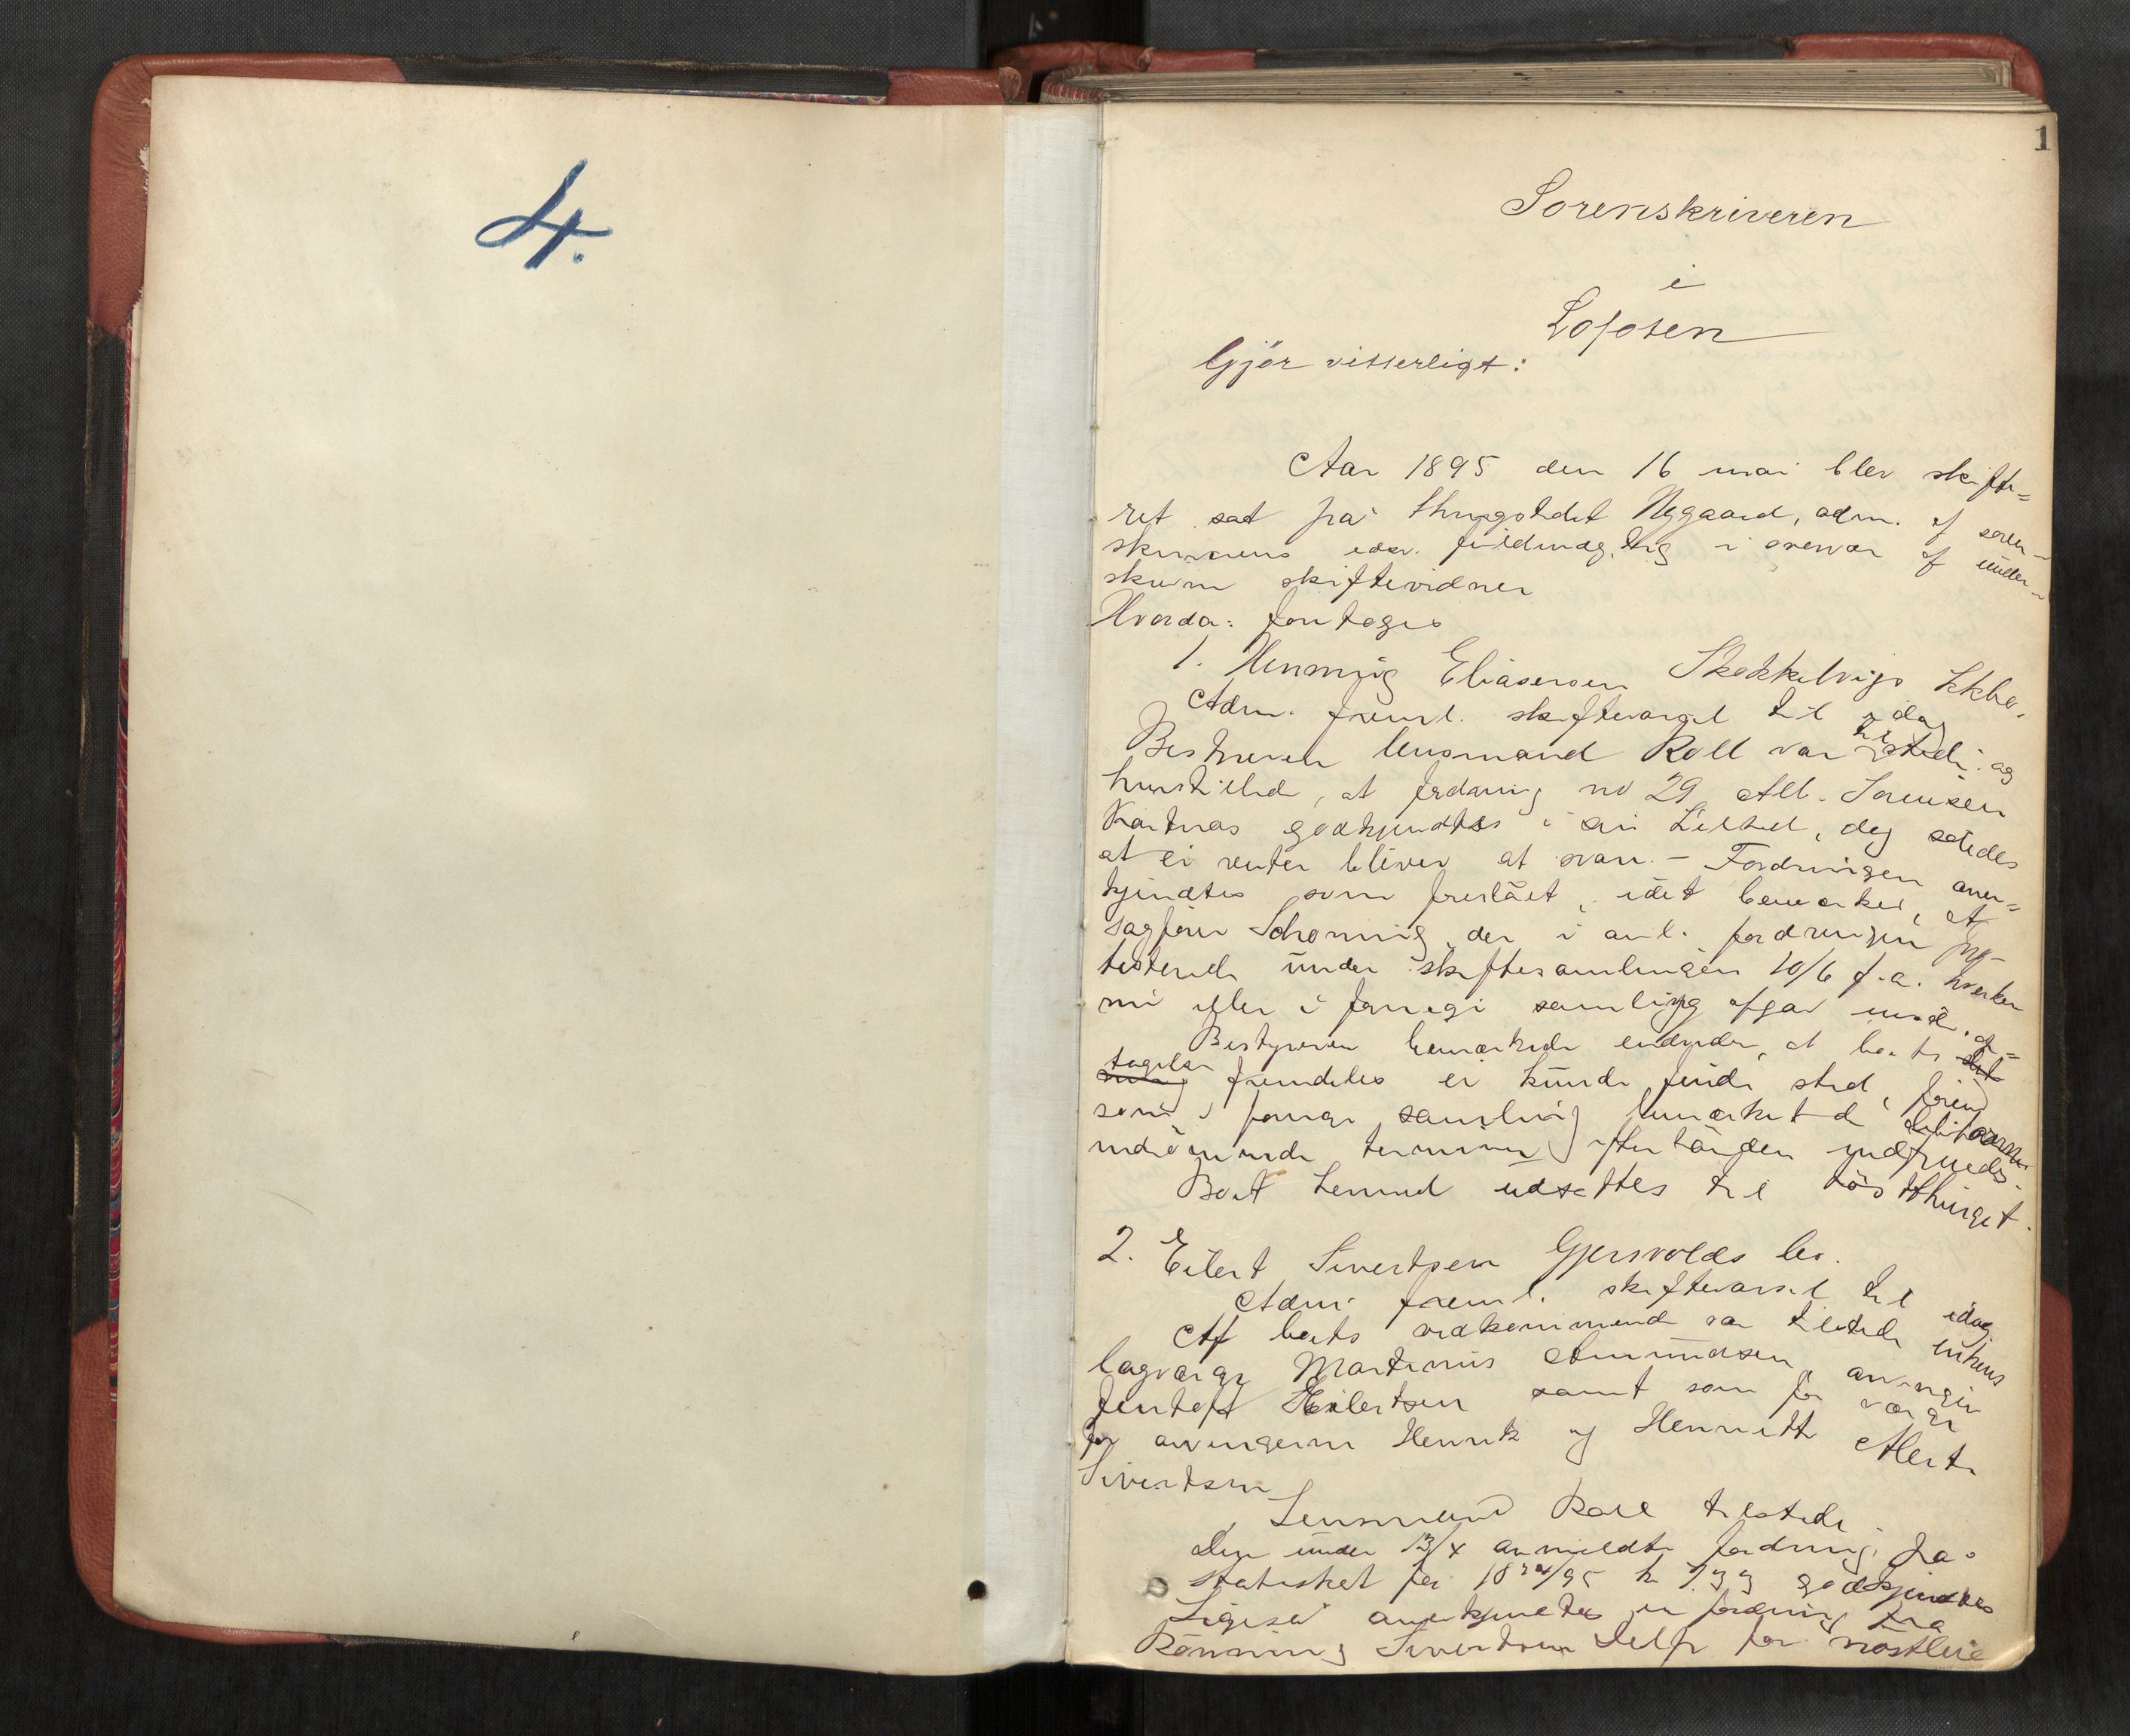 4.
1
Sorenskriveren
i
Lofoten
Gjör vitterligt:
Aar 1895 den 16 mai blev skifte=
ret sat på thinghotellet Nygaard, adm. af soren-
skriverens edsv. fuldmægtig i overvær af under-
skrevne skiftevidner
Hvorda: foretoges
1. Henning Eliasensen Skokkelvigs kkbo.
Adm. freml. skiftevarsel til idag
Bestyreren lensmand Roll var tilstede og
henstillede, at fordring no 29 Alb. Jensen
godkjendtes i sin helhed, dog således
at ei renter bliver at svare. - Fordringen aner=
kjendtes som foreslået, idet bemærkes, at
sagfører Schönning, der i anl. fordringen pro-
testerede under skiftesamlingen 10/6 f.a. hverken
nu eller i forrige samling afgav møde.
Bestyreren bemærkede endvidere, at boets op=
tagelse fremdeles ei kunde finde sted, förend
som i forrige samling bemærket de
terminer efterhånden indfriedes.
Boet termed udsættes til höstthinget.
2. Eilert Sivertsen Gjersvolds bo.
Adm freml. skiftevarsel til idag.
Af boets vedkommende var tilstede enkens
lagværge Martinus Amundsen, arvingen
Jentoft Eilertsen samt som for værge
for arvingerne Henrik og Henriette Alert
Sivertsen
Lensmand Roll tilstede.
Den under 13/4 anmeldte fordring fra
for 1894/95 kr 7,39 godkjendtes
Ligeså anerkjendtes en fordring fra
Rönning Sivertsen for